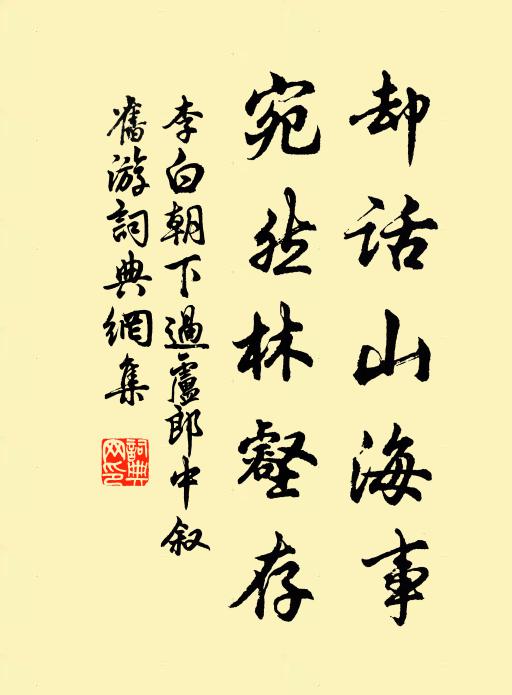 却话山海事
宛然林壑存
李白朝下過盧郎中叙
舊游詞典網集
詞典網印